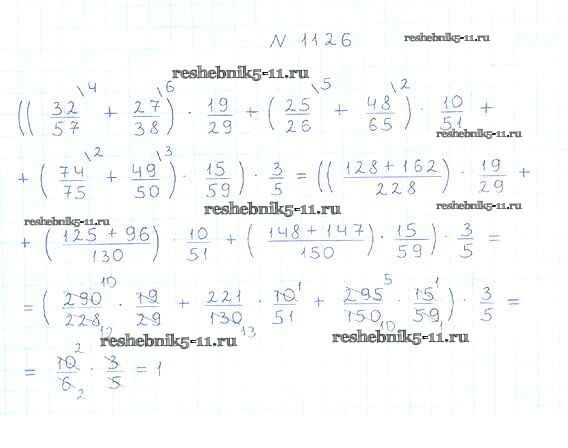 N 1126 reshebnik5-11.ru
reshebnik5-11.ru
((32/57 \4 + 27/38 \6) · 19/29 + (25/26 \5 + 48/65 \2) · 10/51 +
reshebnik5-11.ru
+ (74/75 \2 + 49/50 \3) · 15/59) · 3/5 = ((128+162)/228) · 19/29 +
reshebnik5-11.ru reshebnik5-11.ru
reshebnik5-11.ru
+ ((125+96)/130) · 10/51 + ((148+147)/150) · 15/59) · 3/5 =
= (290/228 · 19/29 + 221/130 · 10/51 + 295/150 · 15/59) · 3/5 =
10 1 5 1
12 13 10 1
reshebnik5-11.ru reshebnik5-11.ru
= 10/6 · 3/5 = 1
2
2